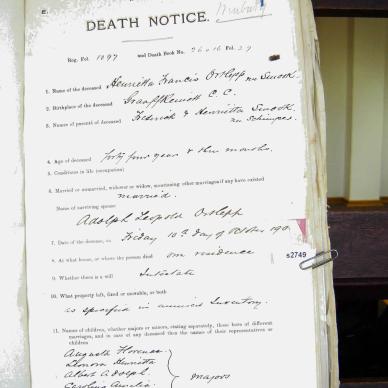 DEATH NOTICE.
Reg. Fol. 1097 and Death Book No. 26016 Fol. 29
1. Name of the deceased Henrietta Francis Ortlepp née Smook
2. Birthplace of the deceased Graaff Reinett C. C.
3. Names of parents of deceased Frederick & Henrietta Smook
née Schimper
4. Age of deceased Forty four years & three months.
5. Condition in life (occupation)
6. Married or unmarried, widower or widow, mentioning other marriages if any have existed
married.
Name of surviving spouse
Adolph Leopold Ortlepp
7. Date of the decease, on Friday 10th day of October
8. At what house, or where the person died own residence
9. Whether there is a will Intestate
10. What property left, fixed or movable, or both
as specified in annexed Inventory.
s2749
11. Names of children, whether majors or minors, stating separately, those born of different
marriages, and in case any of them deceased then the names of their representatives or
children
Augusta Florence
Henrietta
Albert Adolph
Caroline Amelia
majors